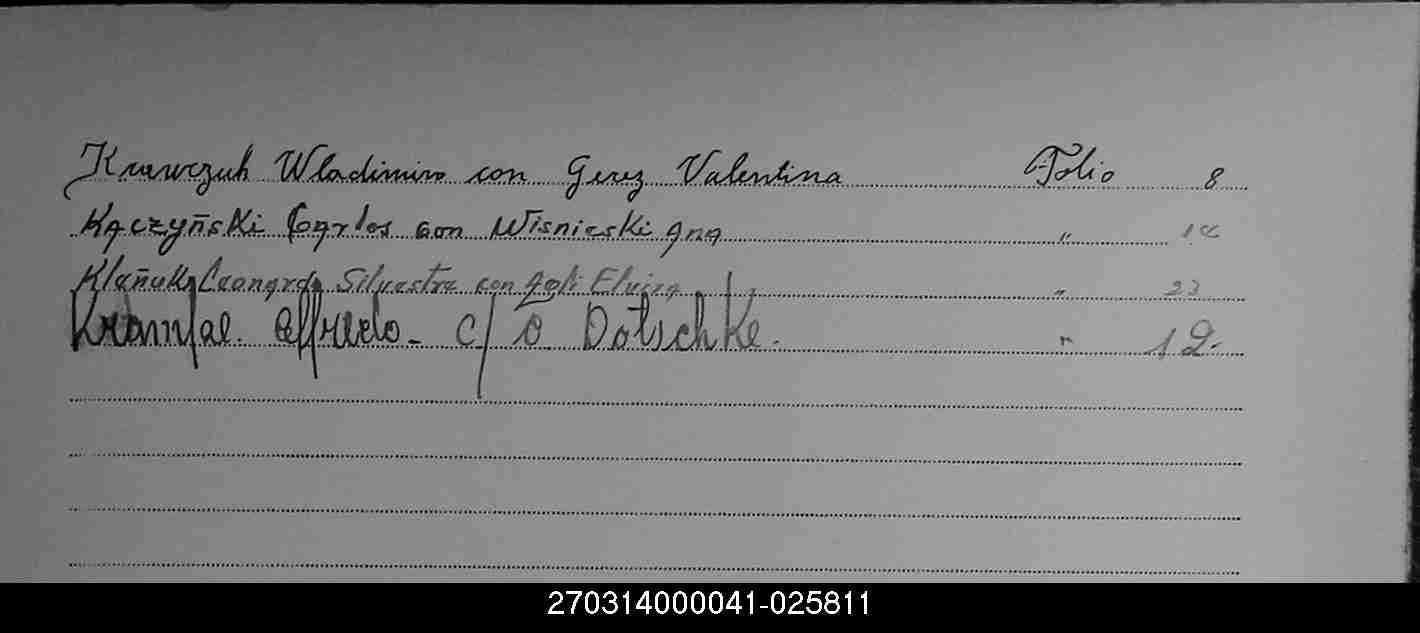 Krawczuk Wladimiro con Gerez Valentina Folio 8
Kaczyñski Carlos con Wisnieski Ana "
Klañuk Leonardo Silvestre con Elvira " 23
Alfredo - c/ O Dotschke. " 12-
270314000041-025811